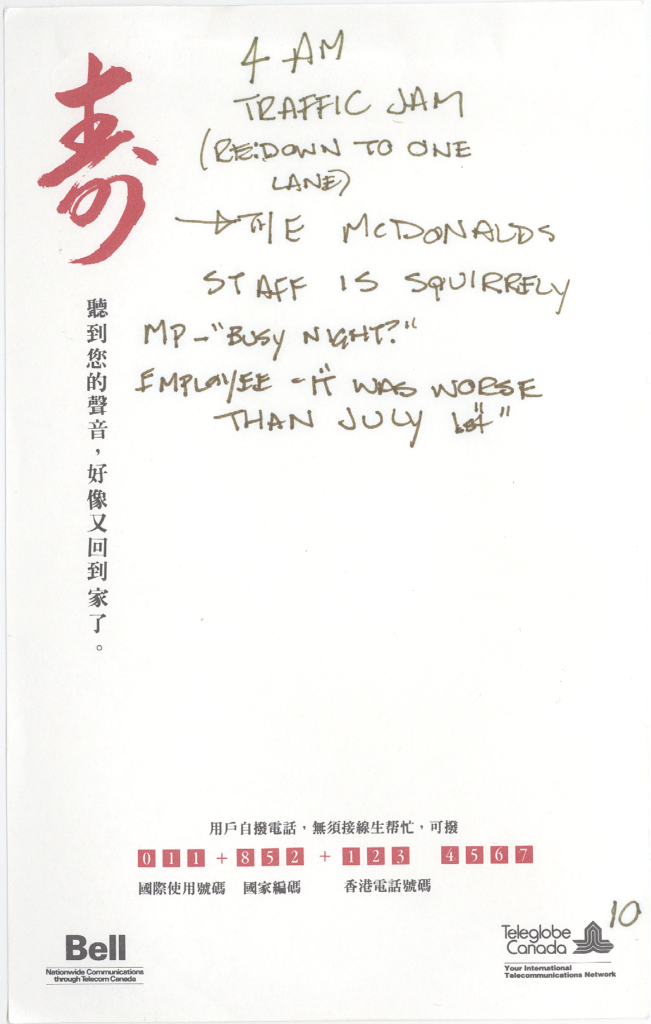 4 AM
TRAFFIC JAM
(RE:DOWN TO ONE
LANE)
→ THE MCDONALDS
STAFF IS SQUIRRELY
MP – "BUSY NIGHT?"
EMPLOYEE – "IT WAS WORSE
THAN JULY 1st"
壽
聽到您的聲音，好像又回到家了。
用戶自撥電話，無須接線生帮忙，可撥
011 + 852 + 123 4567
國際使用號碼 國家編碼 香港電話號碼
Bell
Nationwide Communications
through Telecom Canada
Teleglobe
Canada
Your International
Telecommunications Network
10